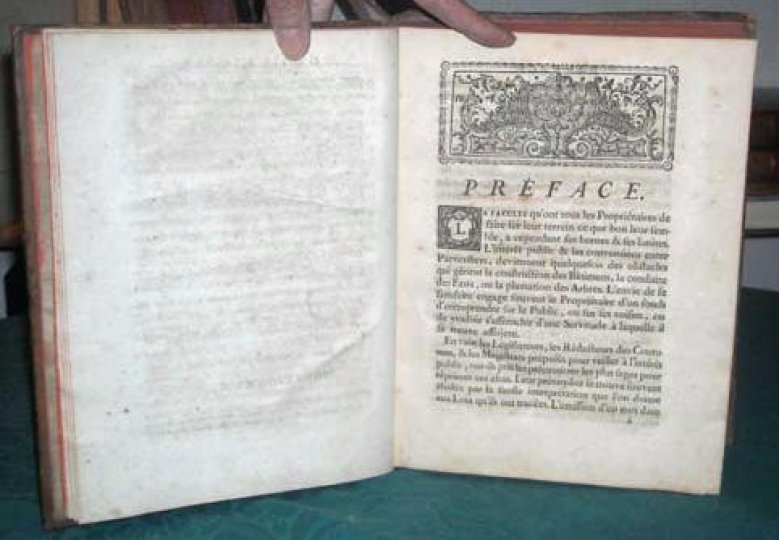 PRÉFACE.
LA FACULTÉ qu'ont tous les Propriétaires de
faire sur leur terrein ce que bon leur sem-
ble, a cependant ses bornes & ses limites.
L'intérêt public & les conventions entre
Particuliers, deviennent quelquefois des obstacles
qui gênent la construction des Bâtimens, la conduite
des Eaux, ou la plantation des Arbres. L'envie de se
satisfaire engage souvent le Propriétaire d'un fonds
d'entreprendre sur le Public, ou sur ses voisins, ou
de vouloir s'affranchir d'une Servitude à laquelle il
se trouve assujetti.
En vain les Législateurs, les Rédacteurs des Coutu-
mes, & les Magistrats préposés pour veiller à l'intérêt
public, ont-ils pris les précautions les plus sages pour
réprimer ces abus. Leur prévoyance se trouve souvent
éludée par la fausse interprétation que l'on donne
aux Loix qu'ils ont tracées. L'omission d'un mot dans